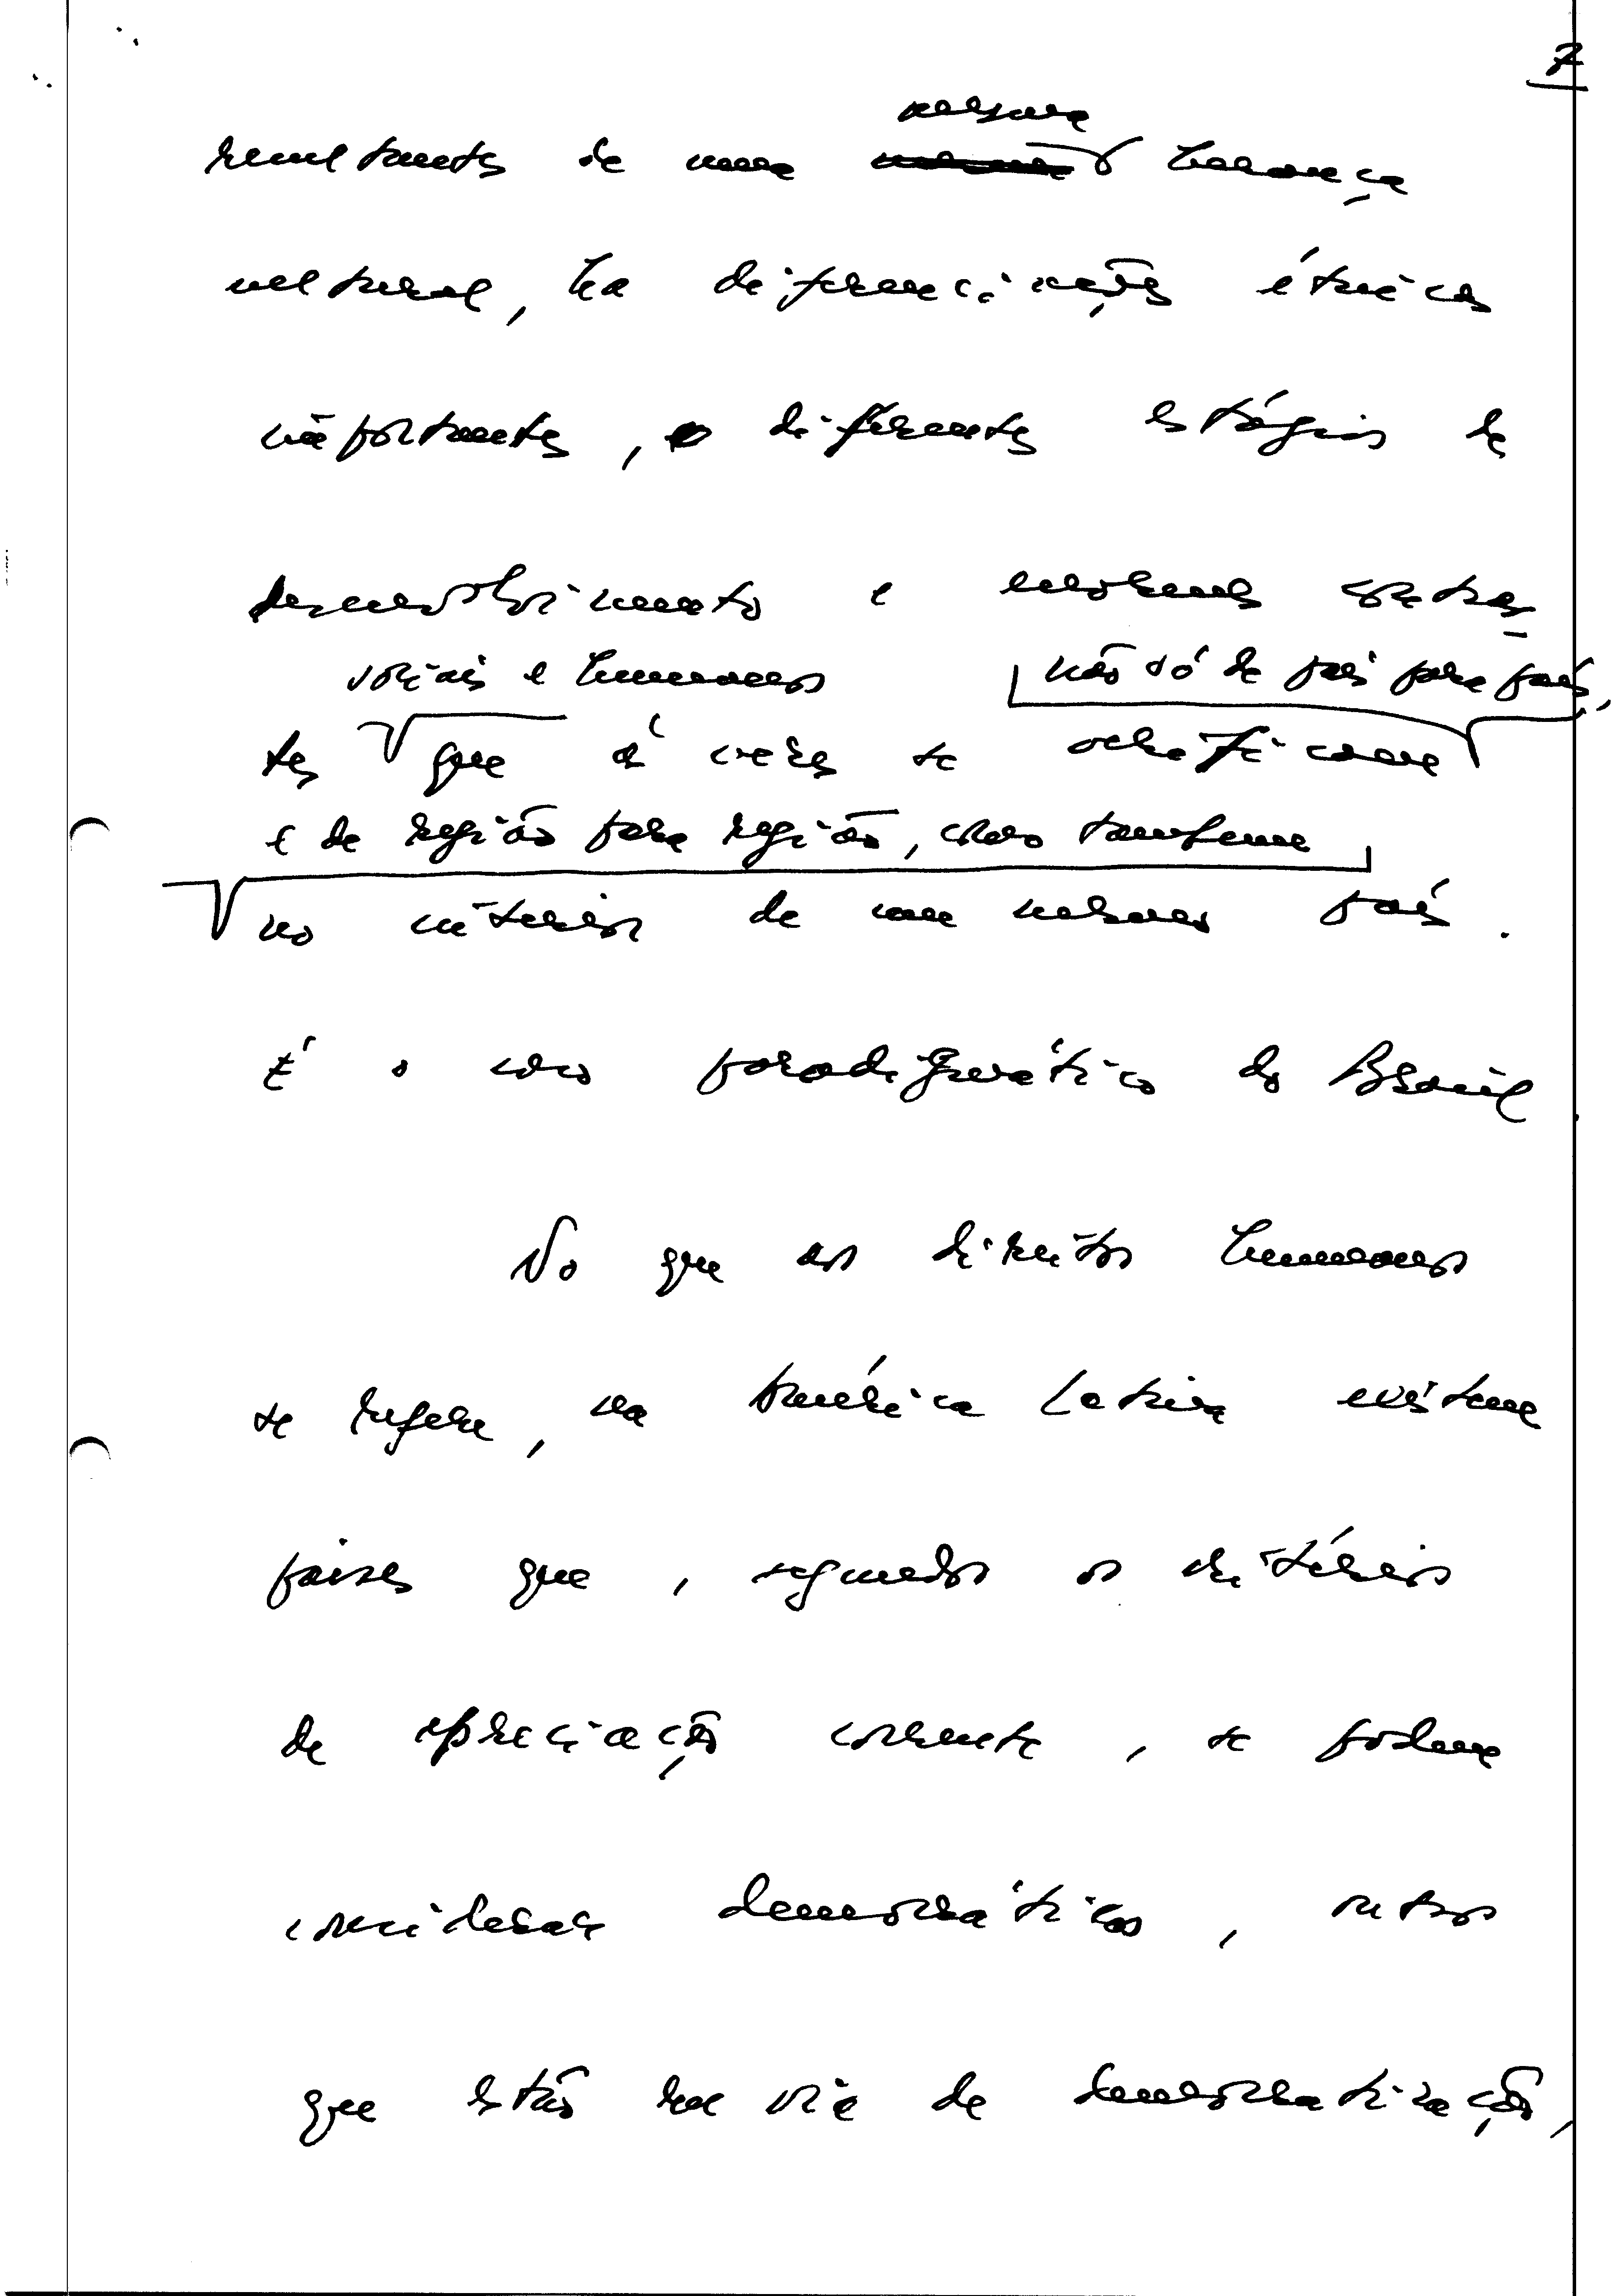 7
mesma
resultantes de uma herança
cultural, há diferenciações étnicas
importantes, diferentes estágios de
desenvolvimento e enormes contras-
sociais e humanos não só de país para país,
tes que às vezes se verificam
e de região para região, mas também
no interior de um mesmo país.
É o caso paradigmático do Brasil.
No que aos direitos humanos
se refere, na América Latina existem
países que, segundo os critérios
de apreciação corrente, se podem
considerar democráticos, outros
que estão em via de democratização,